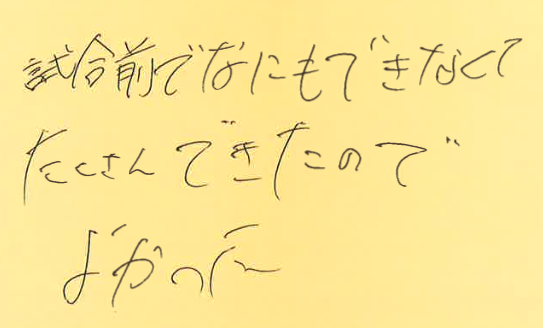 試合前でなにもできなくて
たくさんできたので
よかった